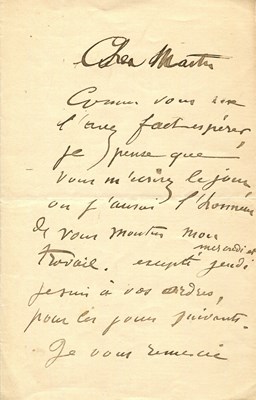 Cher Martin
Comme vous me
l'avez fait espérer,
je pense que
vous m'écrirez le jour
où j'aurai l'honneur
de vous montrer mon
travail. excepté mercredi et jeudi
je suis à vos ordres,
pour les jours suivants.
Je vous remercie